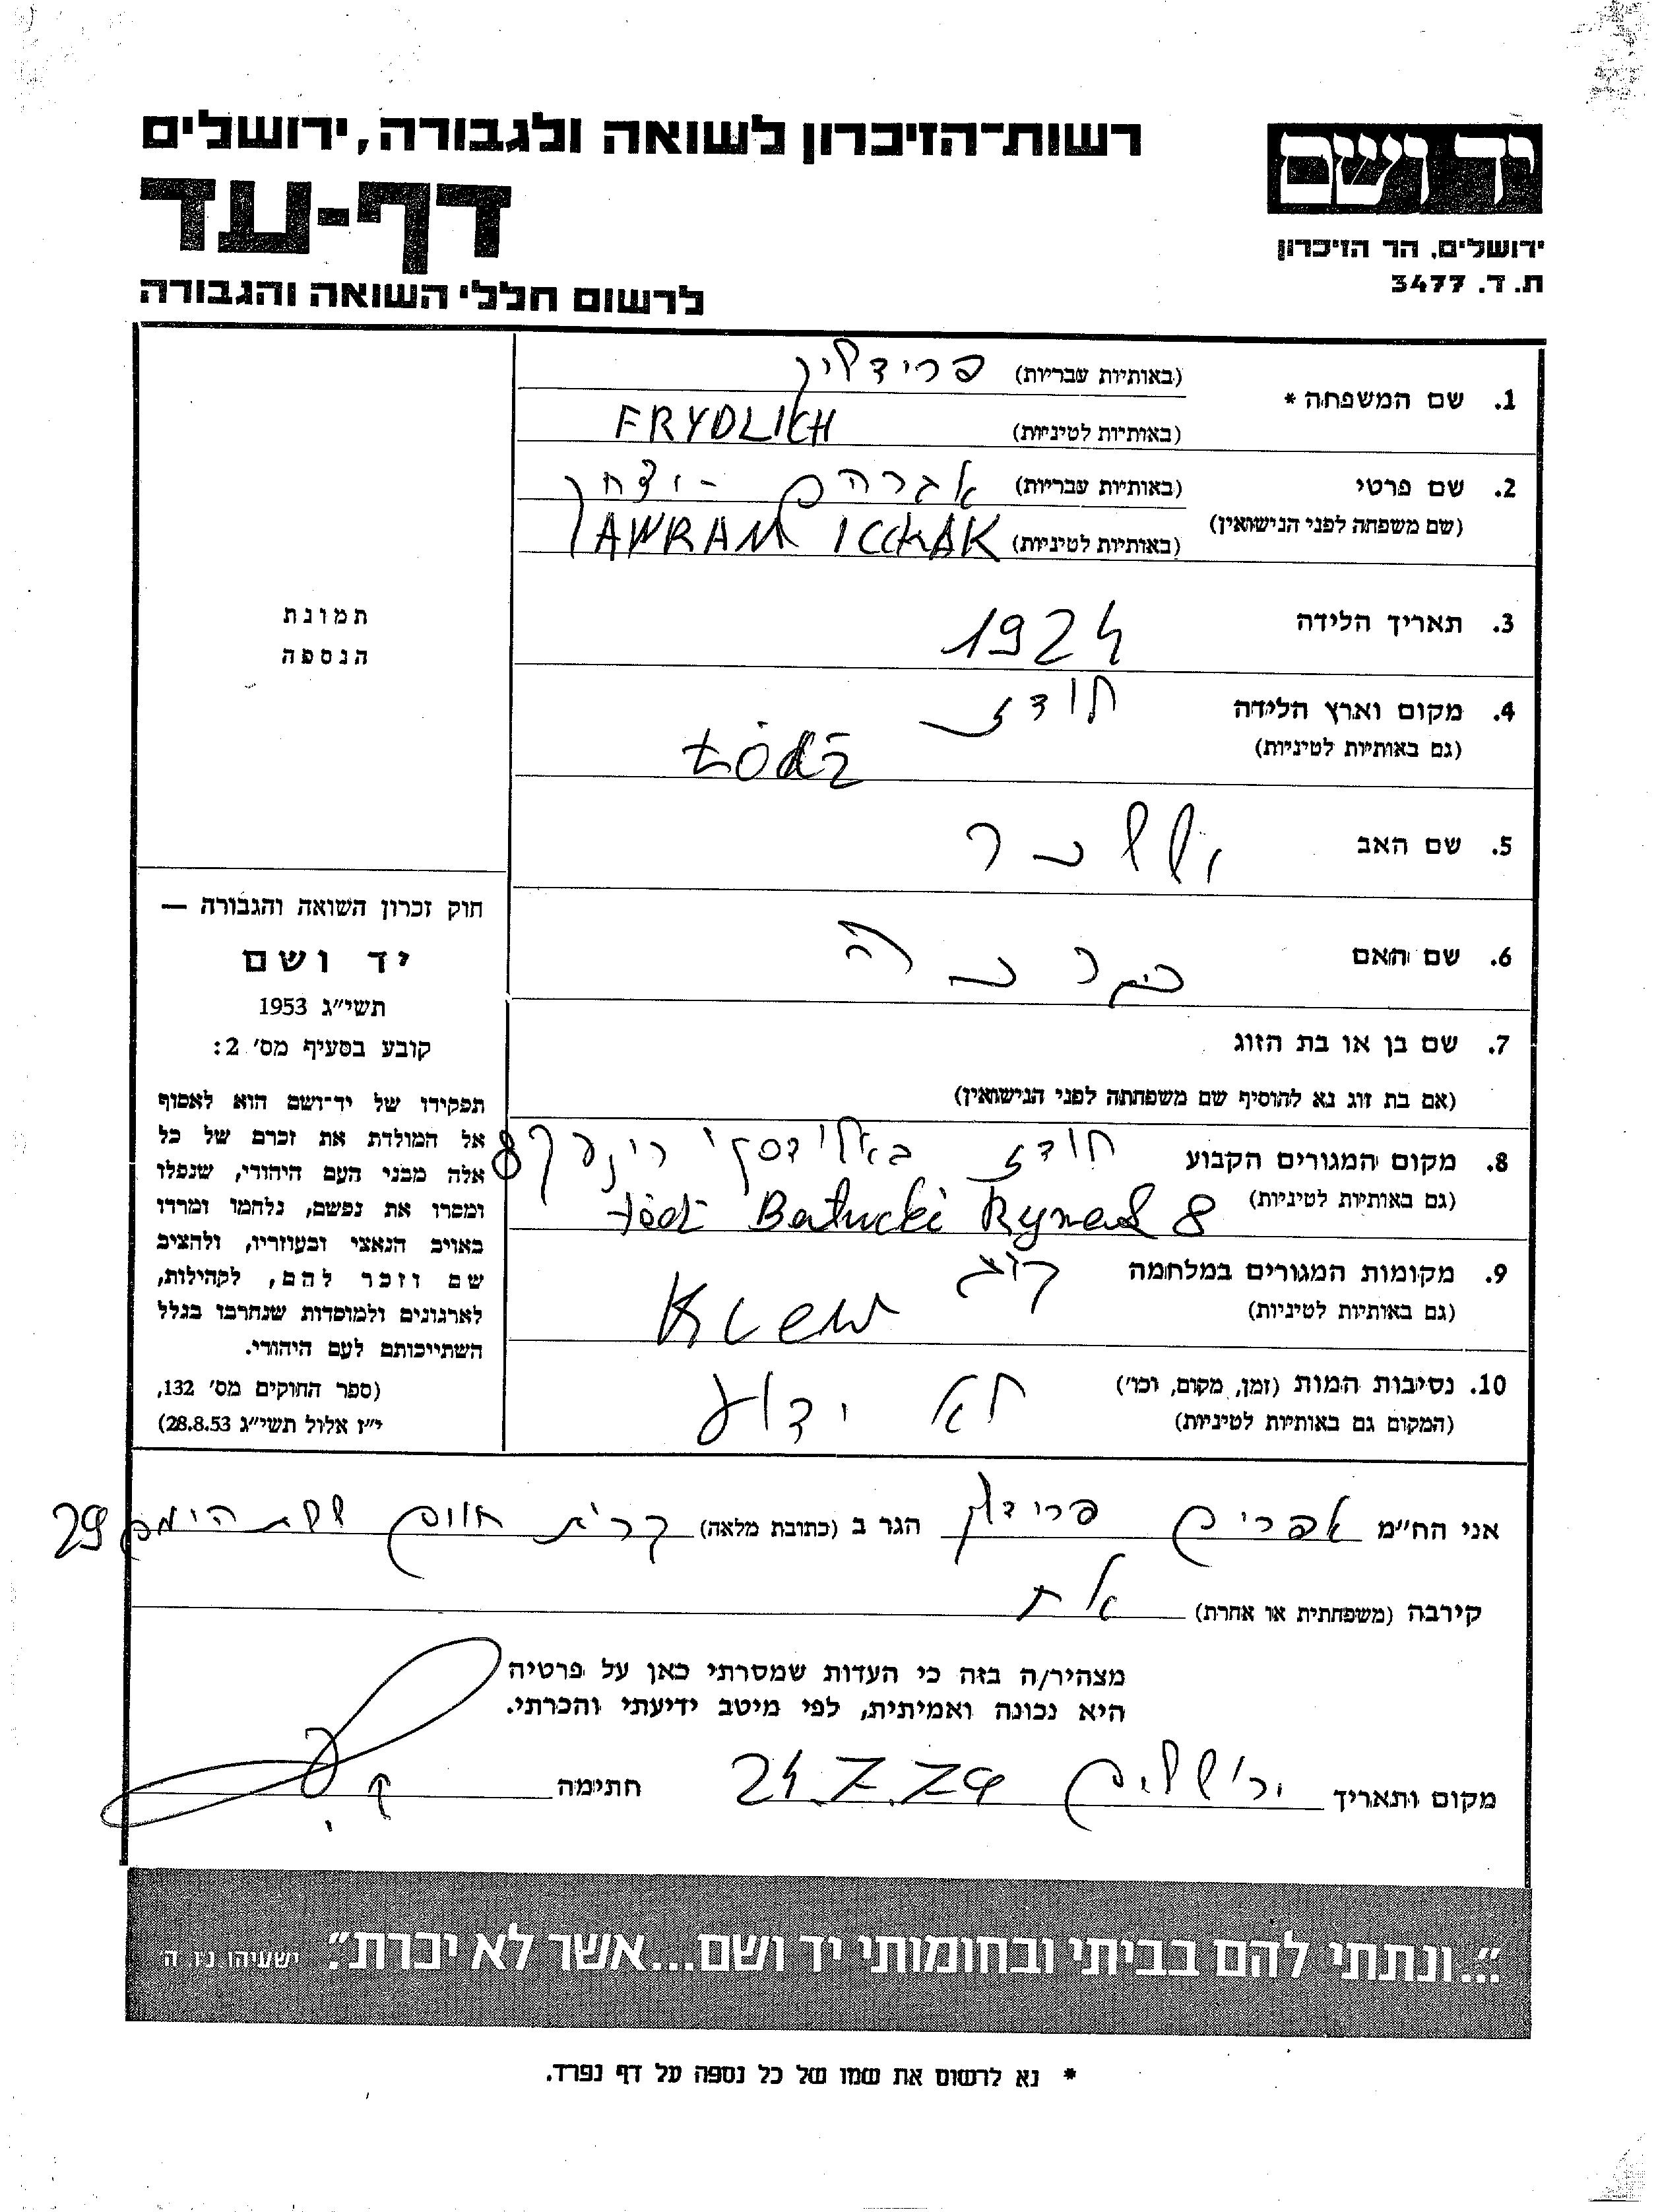 יד ושם
ירושלים, הר הזיכרון
ת. ד. 3477
רשות-הזיכרון לשואה ולגבורה, ירושלים
דף-עד
לרשום חללי השואה והגבורה
1. שם המשפחה *
(באותיות עבריות) פרידליך
(באותיות לטיניות) FRYDLICH
2. שם פרטי
(שם משפחה לפני הנישואין)
(באותיות עבריות) אברהם - יצחק
(באותיות לטיניות) AWRAM ICCHAK
3. תאריך הלידה 1924
4. מקום וארץ הלידה לודז
(גם באותיות לטיניות) Łódź
5. שם האב יששכר
6. שם האם
7. שם בן או בת הזוג
(אם בת זוג נא להוסיף שם משפחתה לפני הנישואין)
8. מקום המגורים הקבוע לודז באלוצקי רינעק 8
(גם באותיות לטיניות) Łódź Bałucki Rynek 8
9. מקומות המגורים במלחמה
(גם באותיות לטיניות)
10. נסיבות המות (זמן, מקום, וכו') לא ידוע
(המקום גם באותיות לטיניות)
תמונת
הנספה
חוק זכרון השואה והגבורה —
יד ושם
תשי״ג 1953
קובע בסעיף מס׳ 2:
תפקידו של יד־ושם הוא לאסוף
אל המולדת את זכרם של כל
אלה מבני העם היהודי, שנפלו
ומסרו את נפשם, נלחמו ומרדו
באויב הנאצי ובעוזריו, ולהציב
שם וזכר להם, לקהילות,
לארגונים ולמוסדות שנחרבו בגלל
השתייכותם לעם היהודי.
(ספר החוקים מס׳ 132,
י״ז אלול תשי״ג 28.8.53)
אני הח״מ אפרים הגר ב (כתובת מלאה) קרית 29
קירבה (משפחתית או אחרת) אח
מצהיר/ה בזה כי העדות שמסרתי כאן על פרטיה
היא נכונה ואמיתית, לפי מיטב ידיעתי והכרתי.
מקום ותאריך ירושלים חתימה
״...ונתתי להם בביתי ובחומותי יד ושם...אשר לא יכרת״. ישעיהו נו ה
* נא לרשום את שמו של כל נספה על דף נפרד.